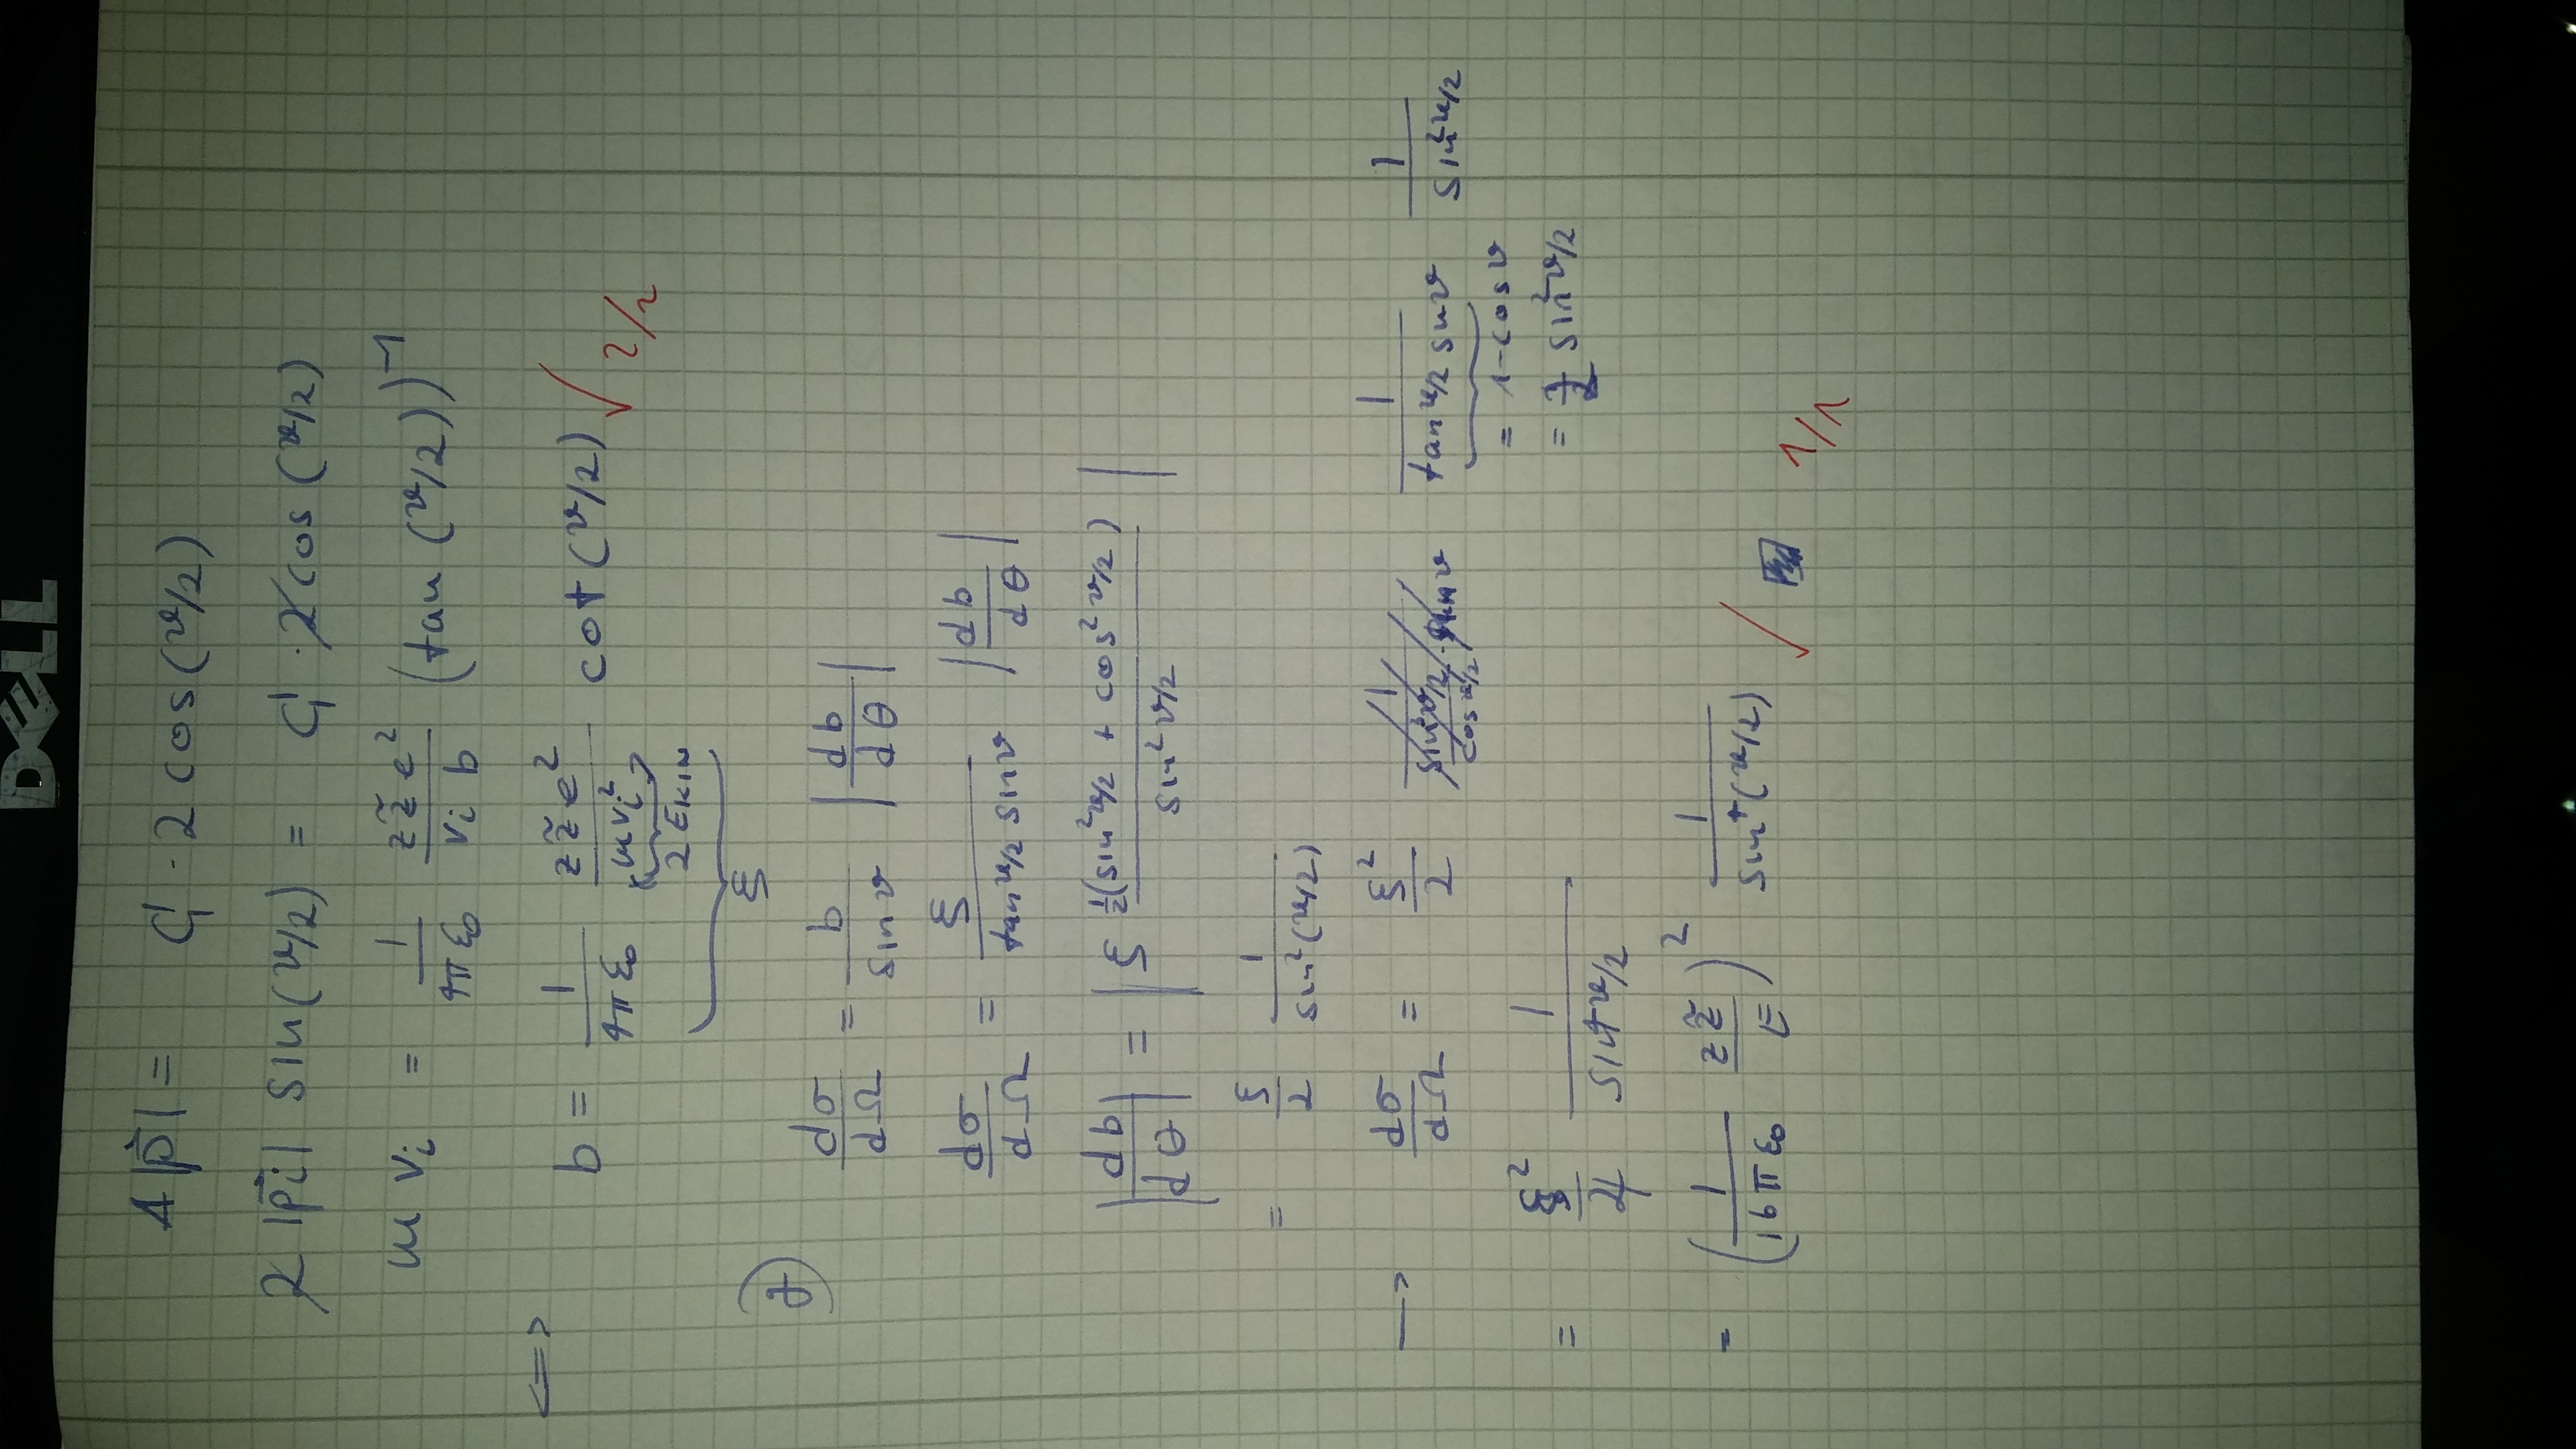 DELL
Δ|p⃗| = C₁ · 2 cos(ϑ/2)
2 |p⃗i| sin(ϑ/2) = C₁ · 2 cos(ϑ/2)
m vi = 1/(4πε₀) z z̃ e²/(vi b) (tan(ϑ/2))⁻¹
<=> b = 1/(4πε₀) z z̃ e²/(m vi²) cot(ϑ/2) ✓ 2/2
2 EKIN
ξ
f)
dσ/dΩ = b/(sin ϑ) |db/dθ|
dσ/dΩ = ξ/(tan ϑ/2 sin ϑ) |db/dθ|
|db/dθ| = |ξ ½(sin² ϑ/2 + cos² ϑ/2)/(sin² ϑ/2)|
= ξ/2 1/(sin²(ϑ/2))
→ dσ/dΩ = ξ²/2 1/(tan ϑ/2 sin ϑ) 1/(sin² ϑ/2)
= 1-cos ϑ
= 2 sin² ϑ/2
= ξ²/4 1/(sin⁴ ϑ/2)
= (1/(16πε₀) z z̃/E)² 1/(sin⁴(ϑ/2)) ✓ 1/1